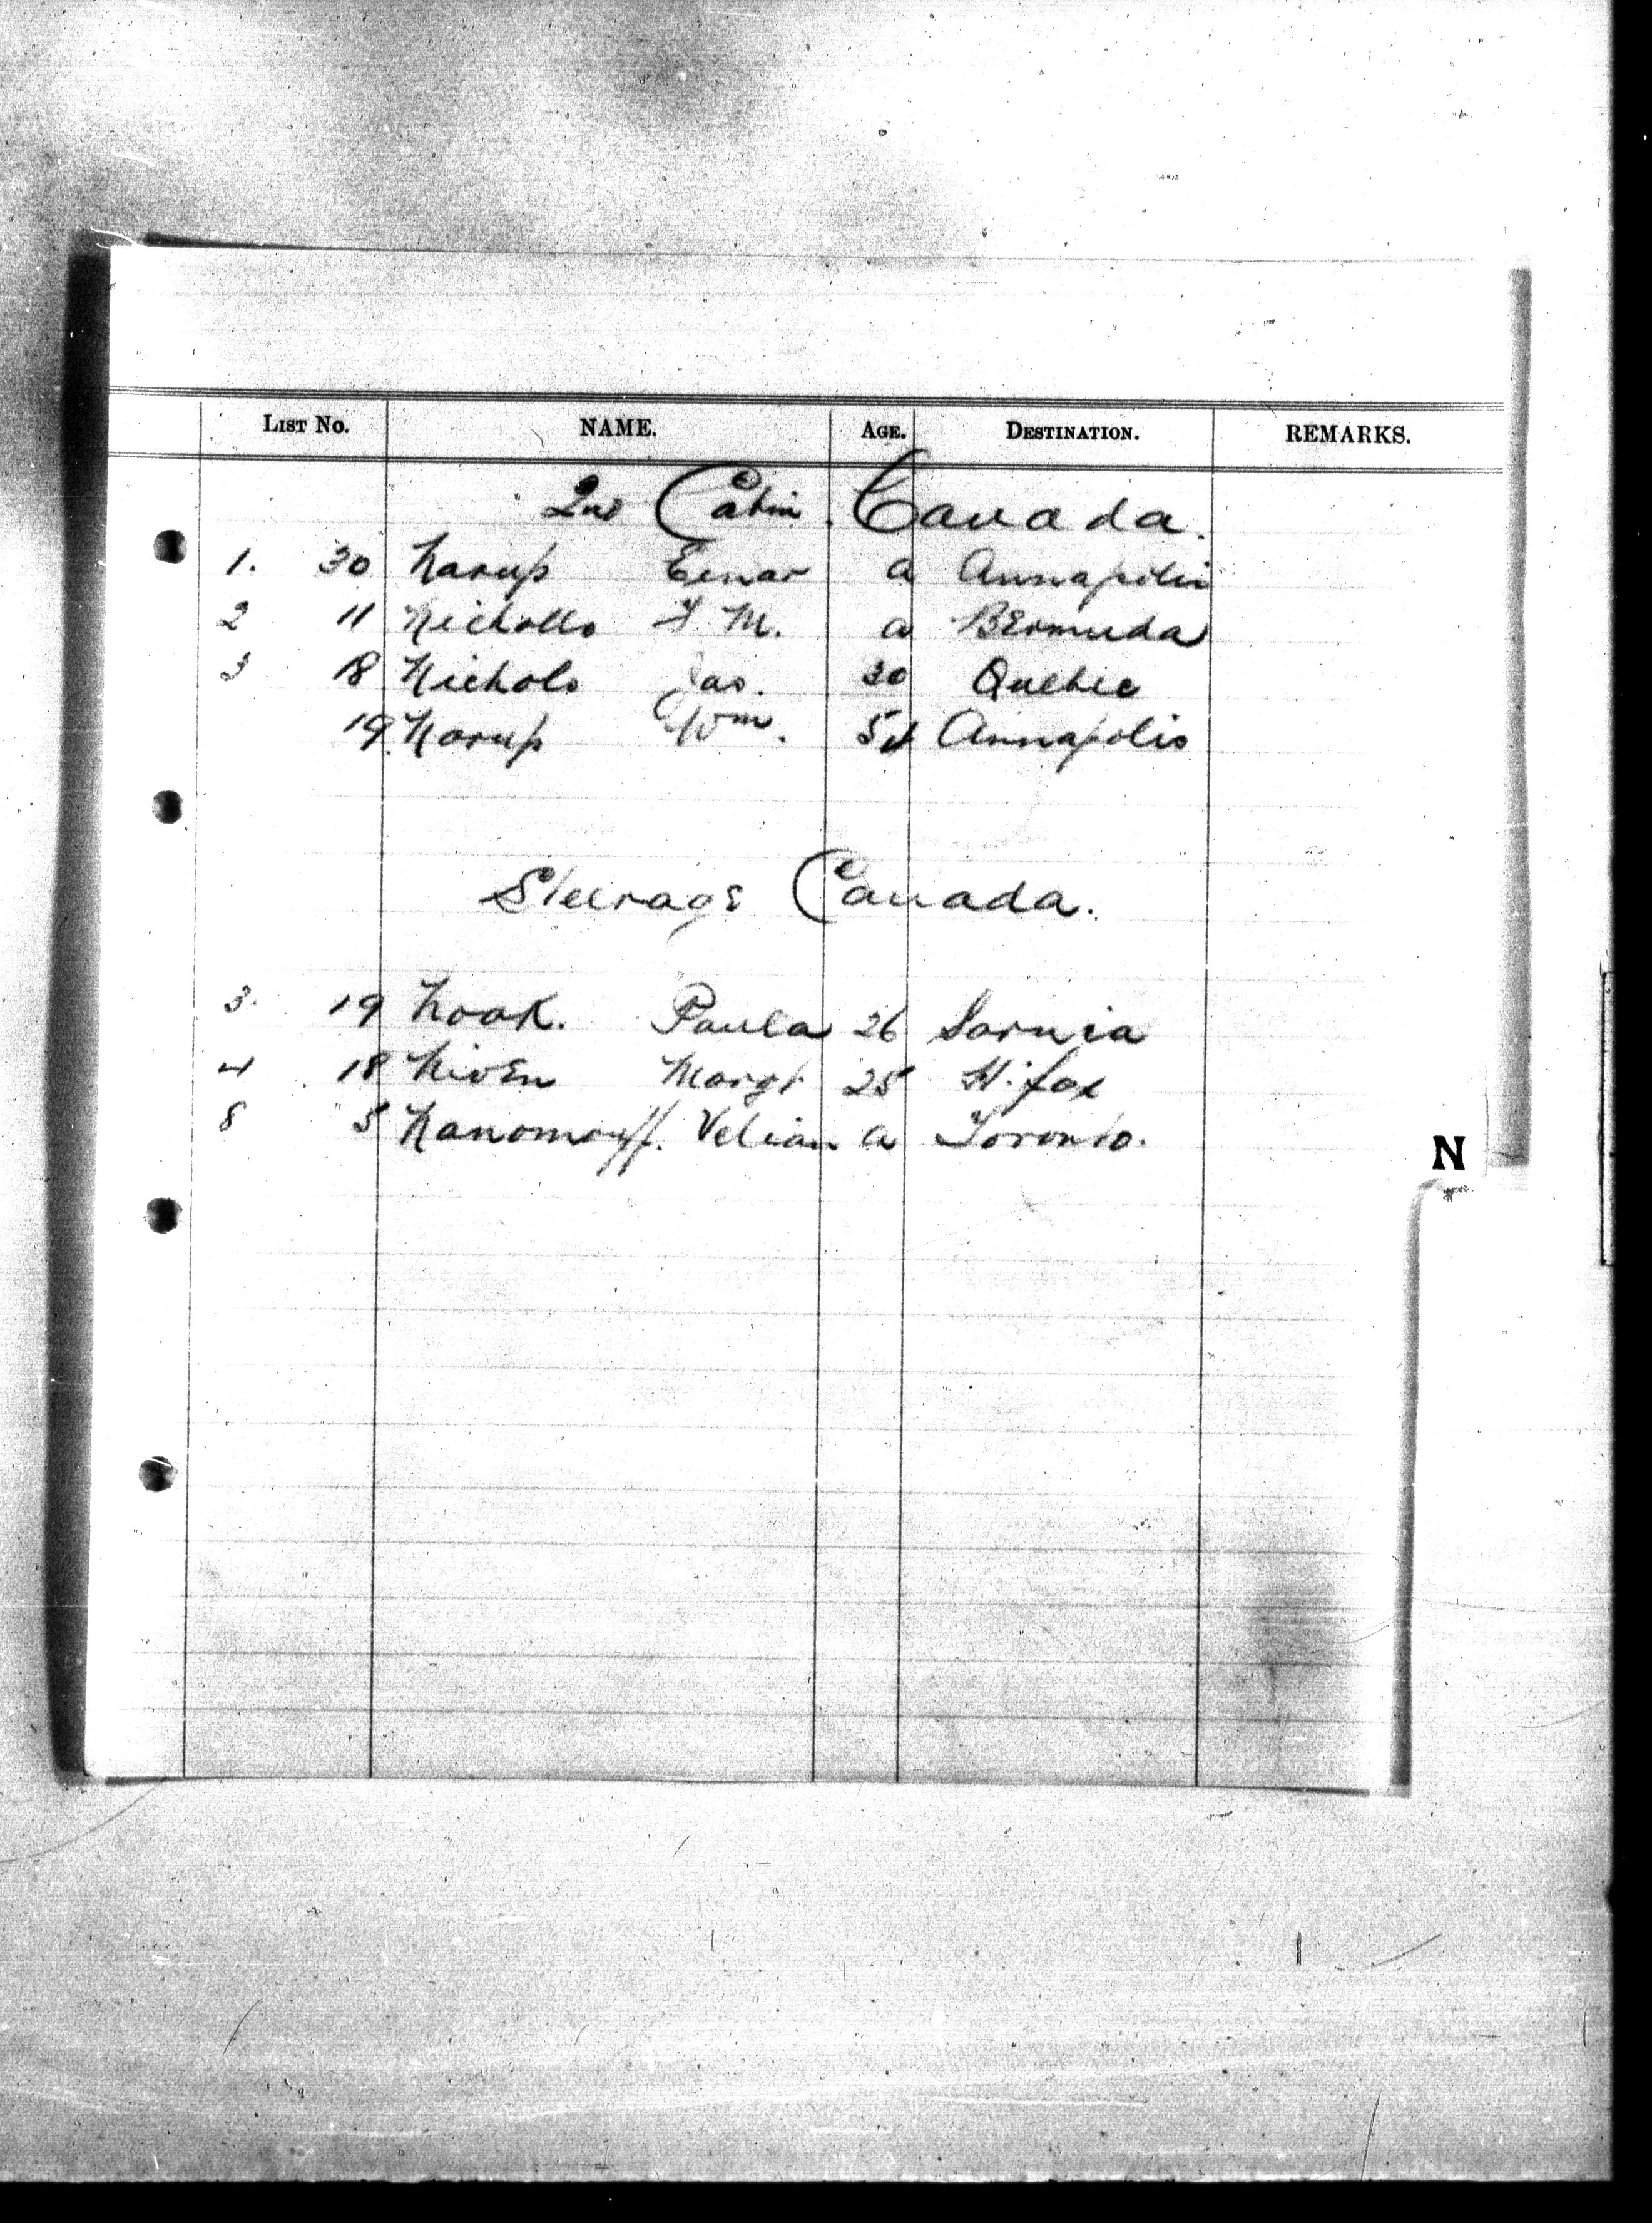 LIST NO. NAME. AGE. DESTINATION. REMARKS.
2nd Cabin Canada.
1. 30 Narup Einar a Annapolis
2 11 Nicholls F. M. a Bermuda
3 18 Nichols Jas. 30 Quebec
19 Narup Wm. Annapolis
Steerage Canada.
3. 19 Noak. Paula 26 Sarnia
4 18 Niven Margt 25 H'fax
8 5 Nanomouff. Velian a Toronto.
N